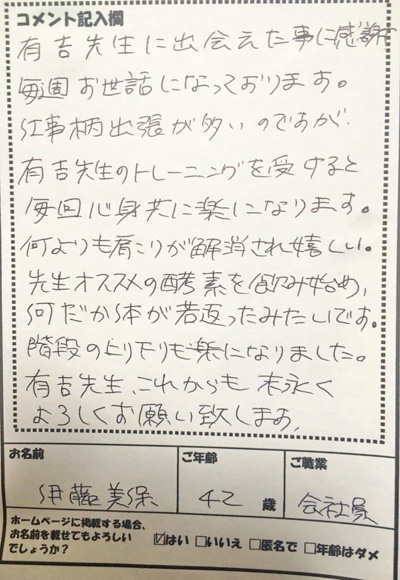 コメント記入欄
有吉先生に出会えた事に感謝
毎週お世話になっております。
仕事柄出張が多いのですが、
有吉先生のトレーニングを受けると
毎回心身共に楽になります。
何よりも肩こりが解消され嬉しい。
先生オススメの酵素を飲み始め、
何だか体が若返ったみたいです。
階段の上り下りも楽になりました。
有吉先生、これからも末永く
よろしくお願い致します。
お名前
ご年齢
ご職業
伊藤美保
42 歳
会社員
ホームページに掲載する場合、
お名前を載せてもよろしい
でしょうか?
☑はい □いいえ □匿名で □年齢はダメ